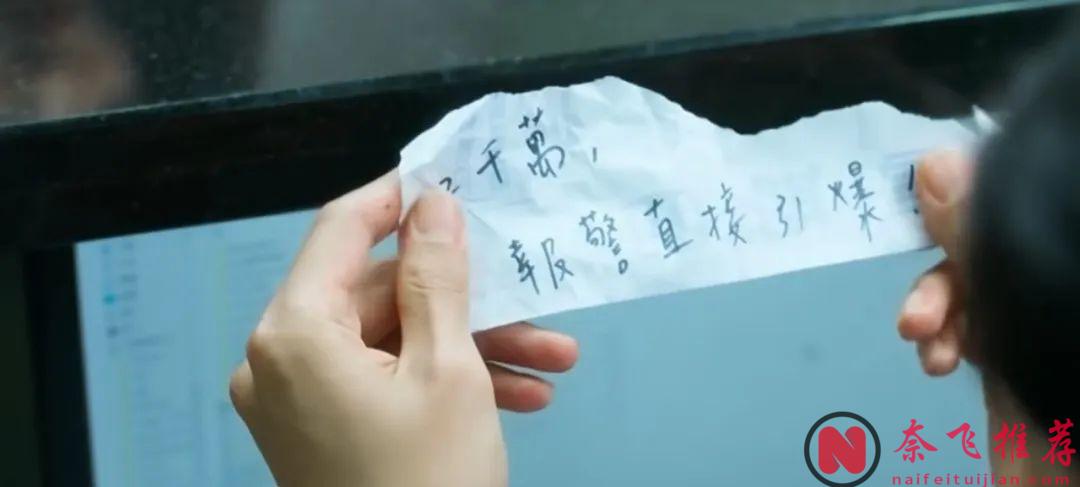 千萬,
報警直接引爆!
N 奈飞推荐
naifeituijian.com